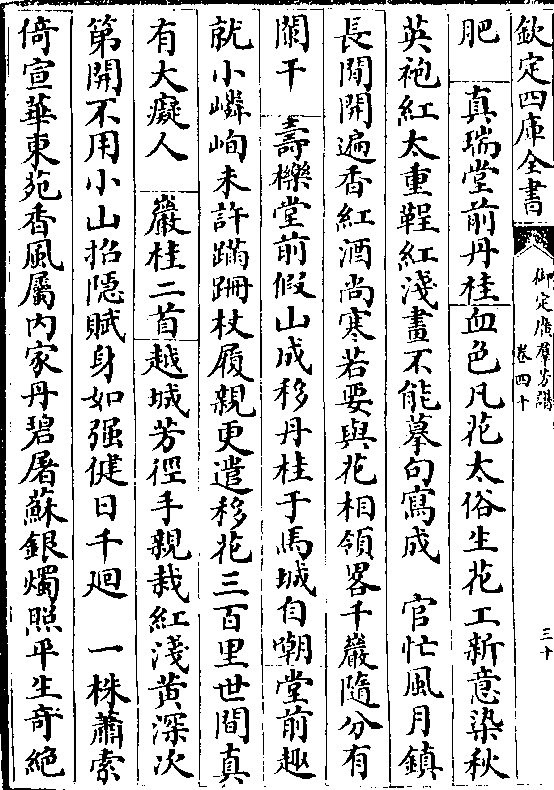 欽定四庫全書
御定廣羣芳譜
卷四十
三十
肥　真瑞堂前丹桂血色凡花太俗生花工新意染秋
英袍紅太重鞓紅淺畫不能摹句寫成　官忙風月鎮
長閒開遍香紅酒尚寒若要與花相領畧千巖隨分有
闌干　壽櫟堂前假山成移丹桂于馬城自嘲堂前趣
就小嶙峋未許蹣跚杖履親更遣移花三百里世間真
有大癡人　巖桂二首越城芳徑手親栽紅淺黄深次
第開不用小山招隠賦身如强健日千廻　一株蕭索
倚宣華東苑香風屬内家丹碧屠蘇銀燭照平生奇絶